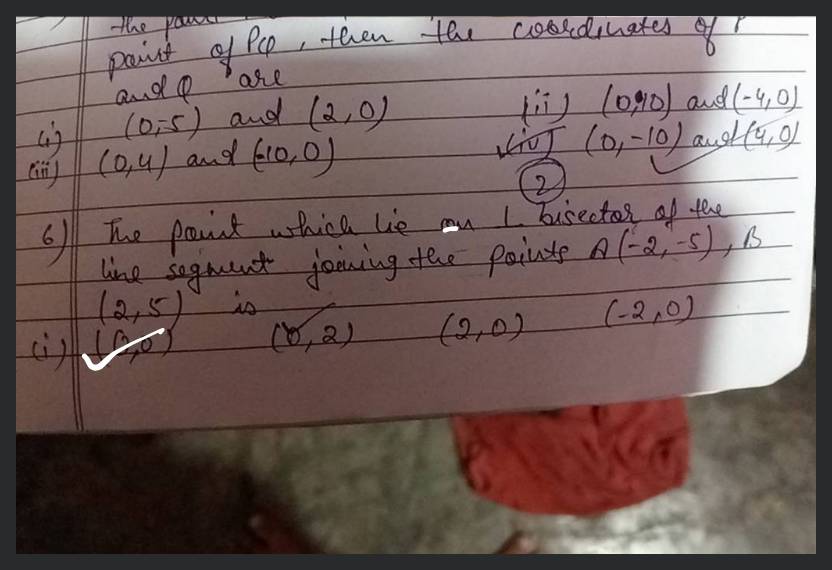 the point
point of PQ, then the coordinates of P
and Q are
(i) (0,-5) and (2,0) (ii) (0,10) and (-4,0)
(iii) (0,4) and (-10,0) (iv) (0,-10) and (4,0)
2
6) The point which lie on ⊥ bisector of the
line segment joining the points A(-2,-5), B
(2,5) is
(i) (0,0) (0,2) (2,0) (-2,0)